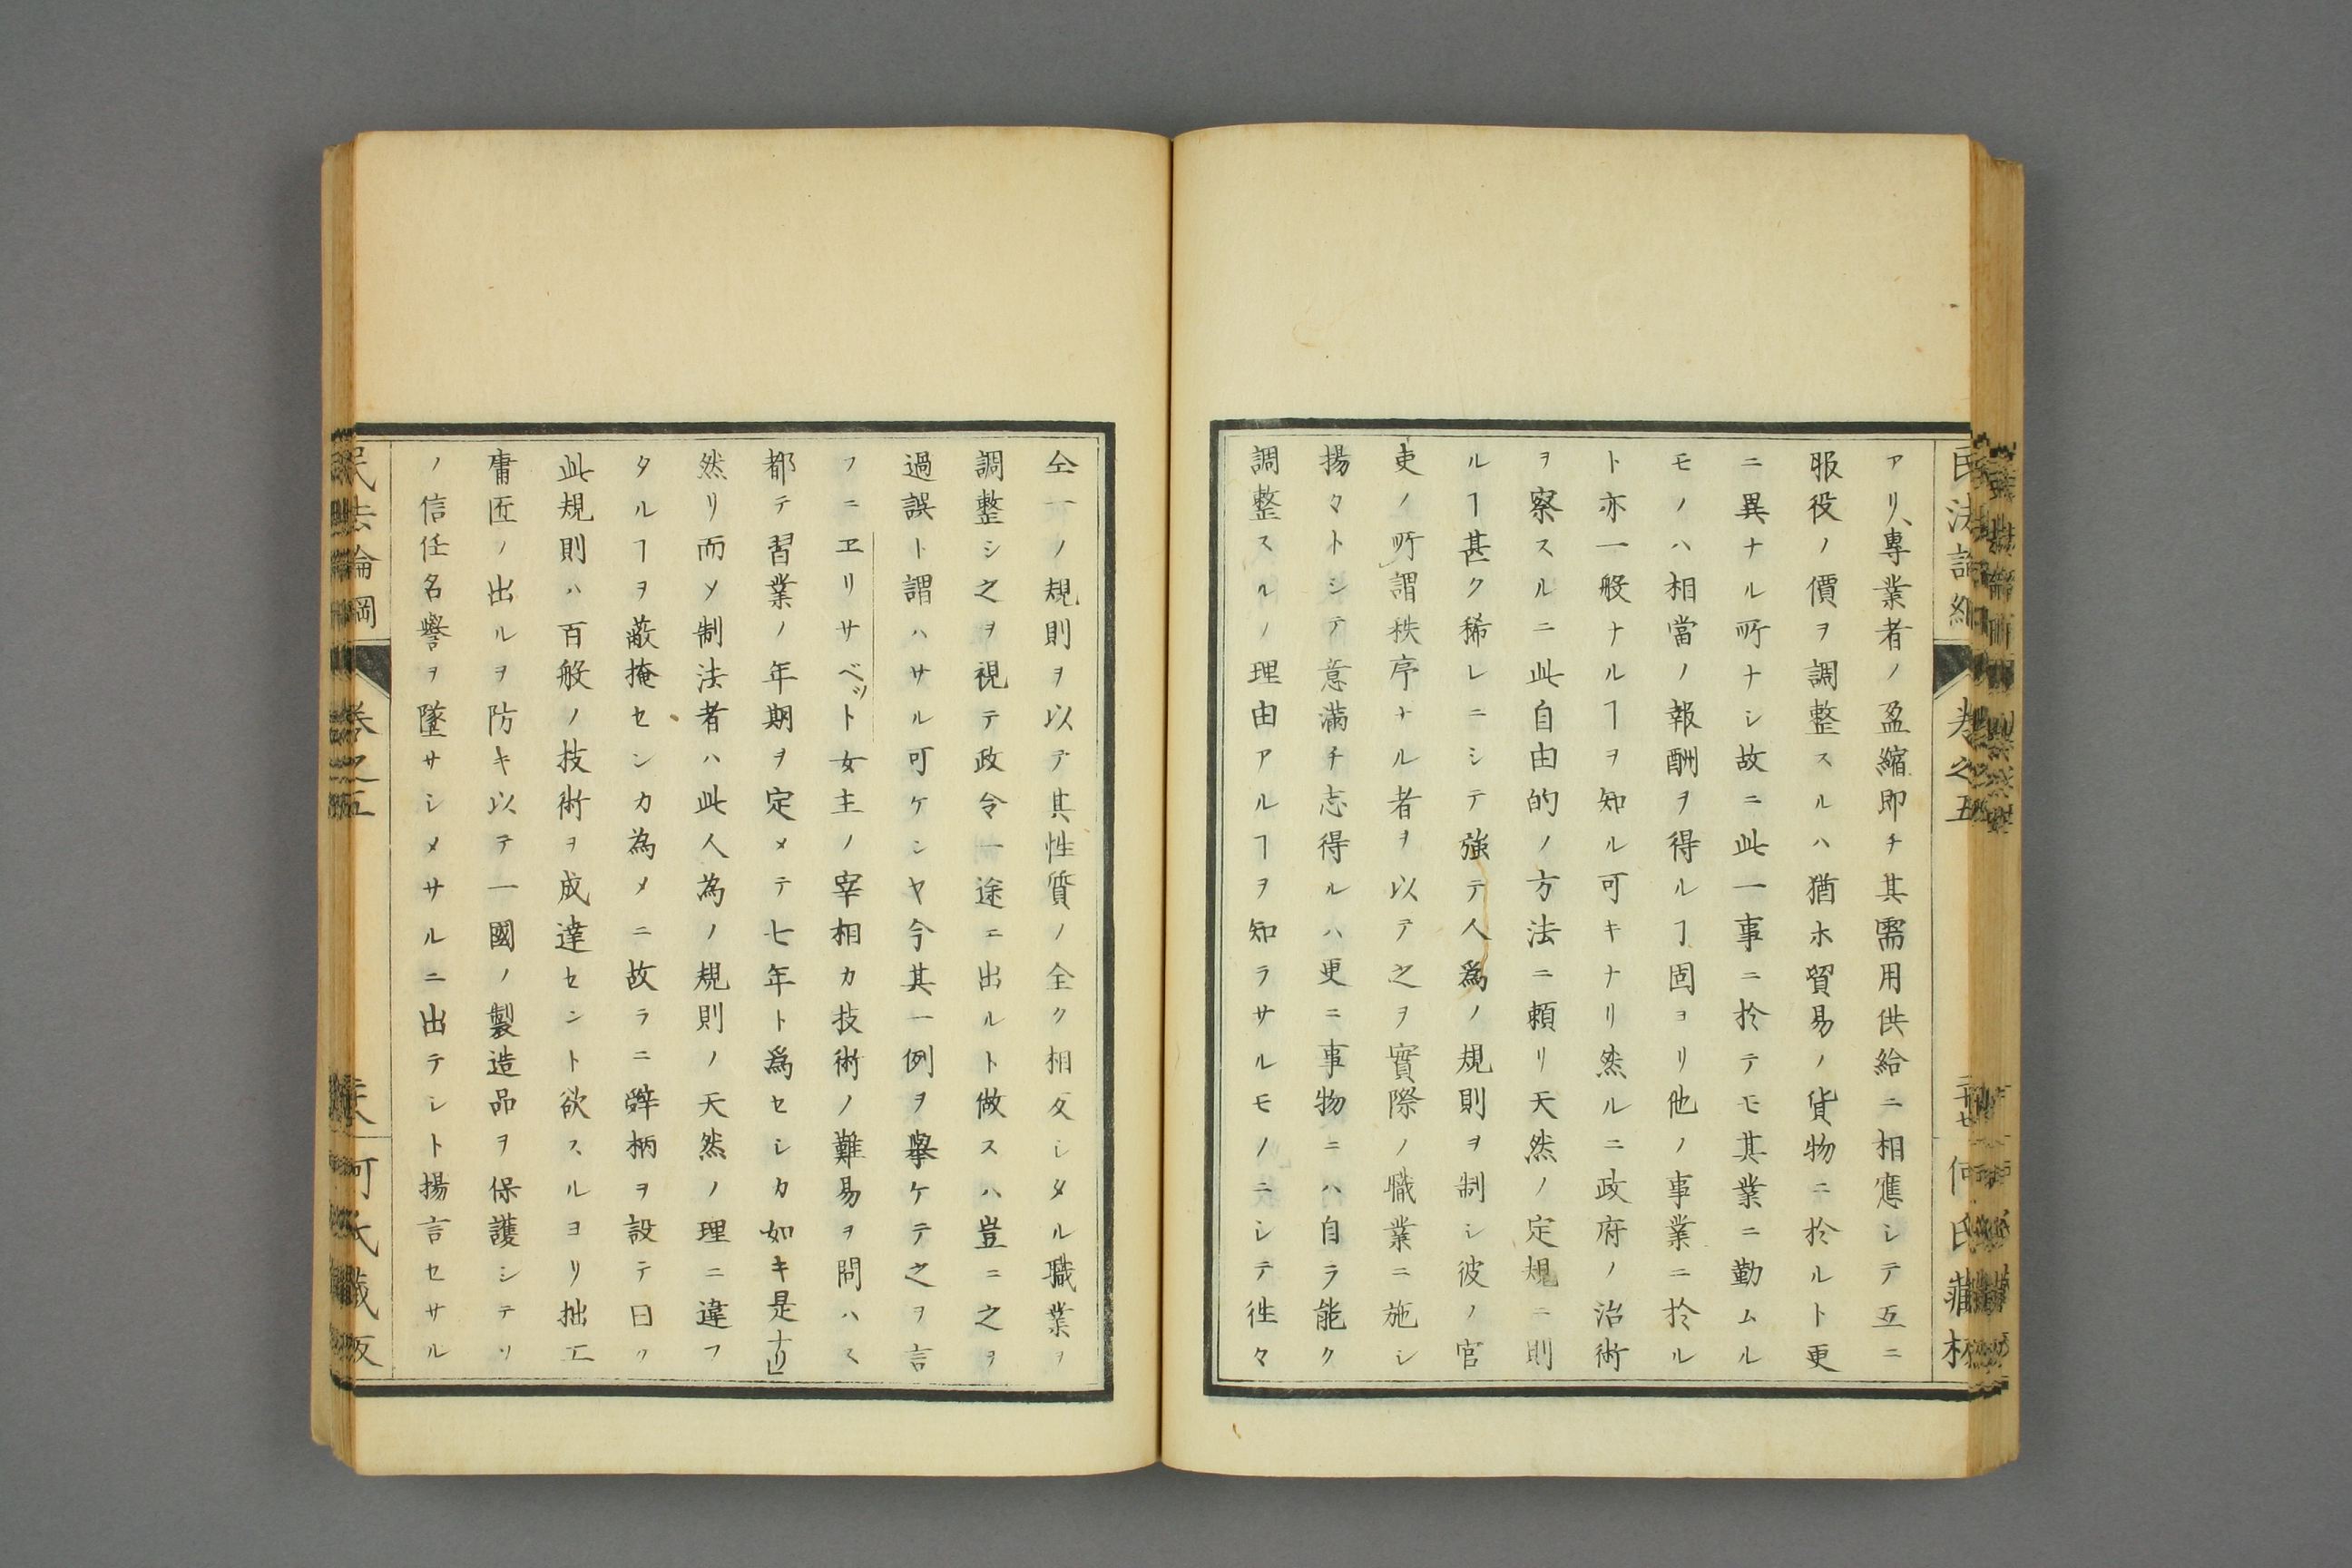 アリ、專業者ノ盈縮即チ其需用供給ニ相應シテ互ニ
服役ノ價ヲ調整スルハ猶ホ貿易ノ貨物ニ於ルト更
ニ異ナル所ナシ故ニ此一事ニ於テモ其業ニ勤ムル
モノハ相當ノ報酬ヲ得ルヿ固ヨリ他ノ事業ニ於ル
ト亦一般ナルヿヲ知ル可キナリ然ルニ政府ノ治術
ヲ察スルニ此自由的ノ方法ニ頼リ天然ノ定規ニ則
ルヿ甚ク稀レニシテ強テ人爲ノ規則ヲ制シ彼ノ官
吏ノ所謂秩序ナル者ヲ以テ之ヲ實際ノ職業ニ施シ
揚々トシテ意滿チ志得ルハ更ニ事物ニハ自ラ能ク
調整スルノ理由アルヿヲ知ラサルモノニシテ徃々
民法論綱 卷之五 二十七 何氏藏板
仝一ノ規則ヲ以テ其性質ノ全ク相反シタル職業ヲ
調整シ之ヲ視テ政令一途ニ出ルト做スハ豈ニ之ヲ
過誤ト謂ハサル可ケンヤ今其一例ヲ擧ケテ之ヲ言
フニヱリサベット女主ノ宰相カ技術ノ難易ヲ問ハス
都テ習業ノ年期ヲ定メテ七年ト爲セシカ如キ是ナリ
然リ而メ制法者ハ此人為ノ規則ノ天然ノ理ニ違フ
タルヿヲ蔽掩センカ為メニ故ラニ辭柄ヲ設テ曰ク
此規則ハ百般ノ技術ヲ成達セント欲スルヨリ拙工
庸匠ノ出ルヲ防キ以テ一國ノ製造品ヲ保護シテソ
ノ信任名譽ヲ墜サシメサルニ出テシト揚言セサル
民法論綱 卷之五 何氏藏板